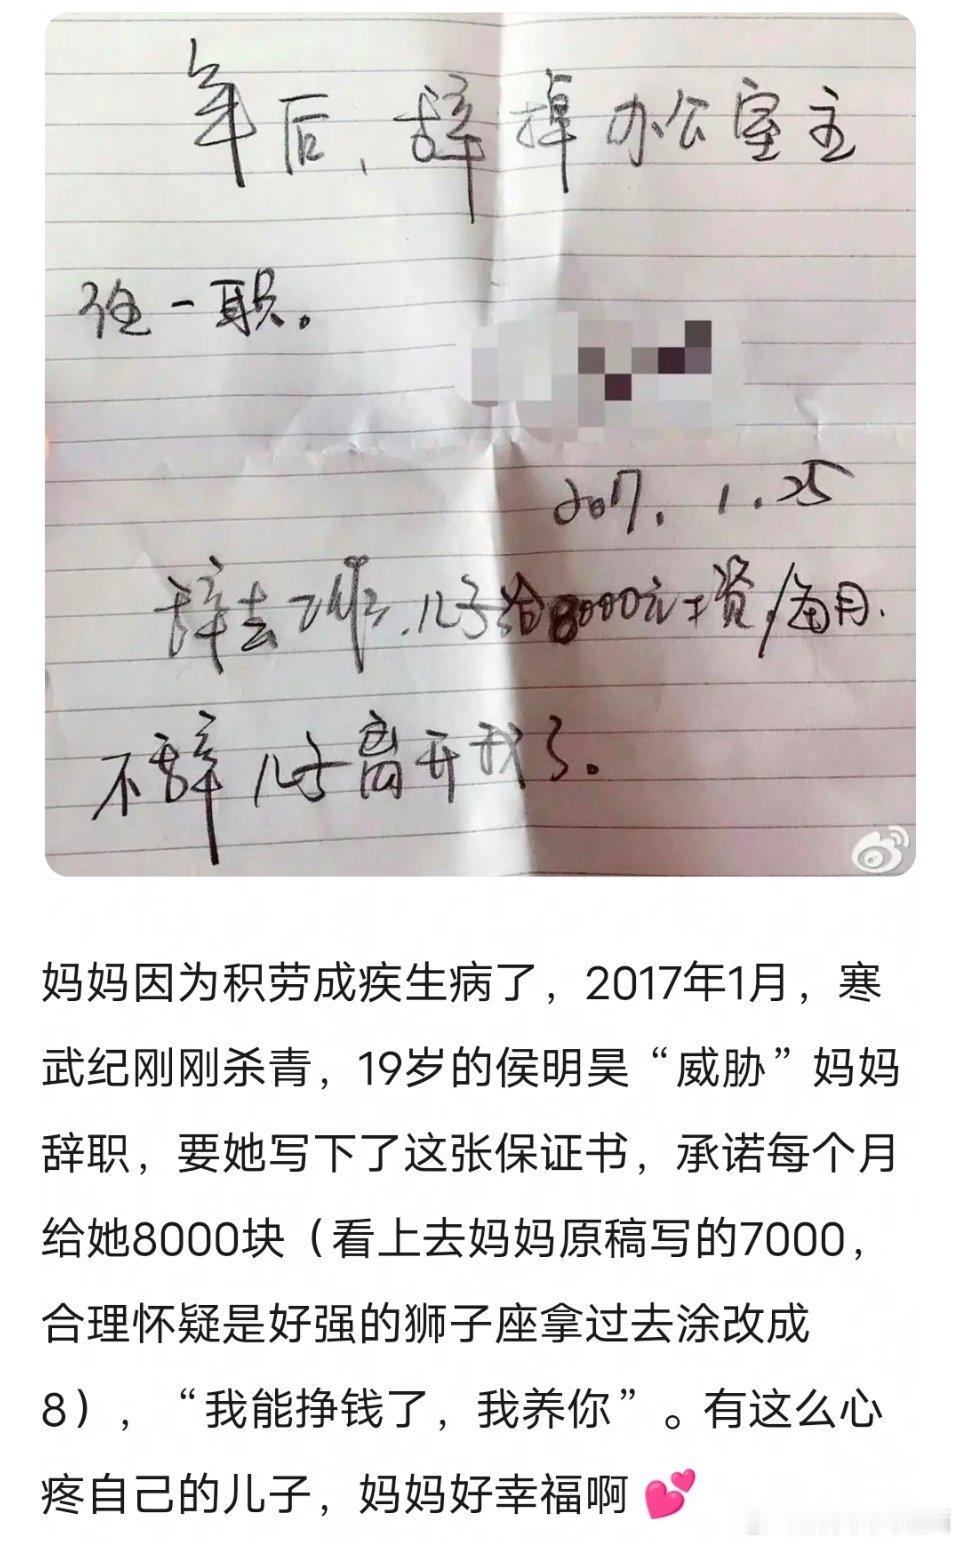 年后，辞掉办公室主
任一职。
2017.1.25
辞去工作.儿子给8000元工资/每月.
不辞儿子离开我了。
妈妈因为积劳成疾生病了，2017年1月，寒
武纪刚刚杀青，19岁的侯明昊“威胁”妈妈
辞职，要她写下了这张保证书，承诺每个月
给她8000块（看上去妈妈原稿写的7000，
合理怀疑是好强的狮子座拿过去涂改成
8），“我能挣钱了，我养你”。有这么心
疼自己的儿子，妈妈好幸福啊